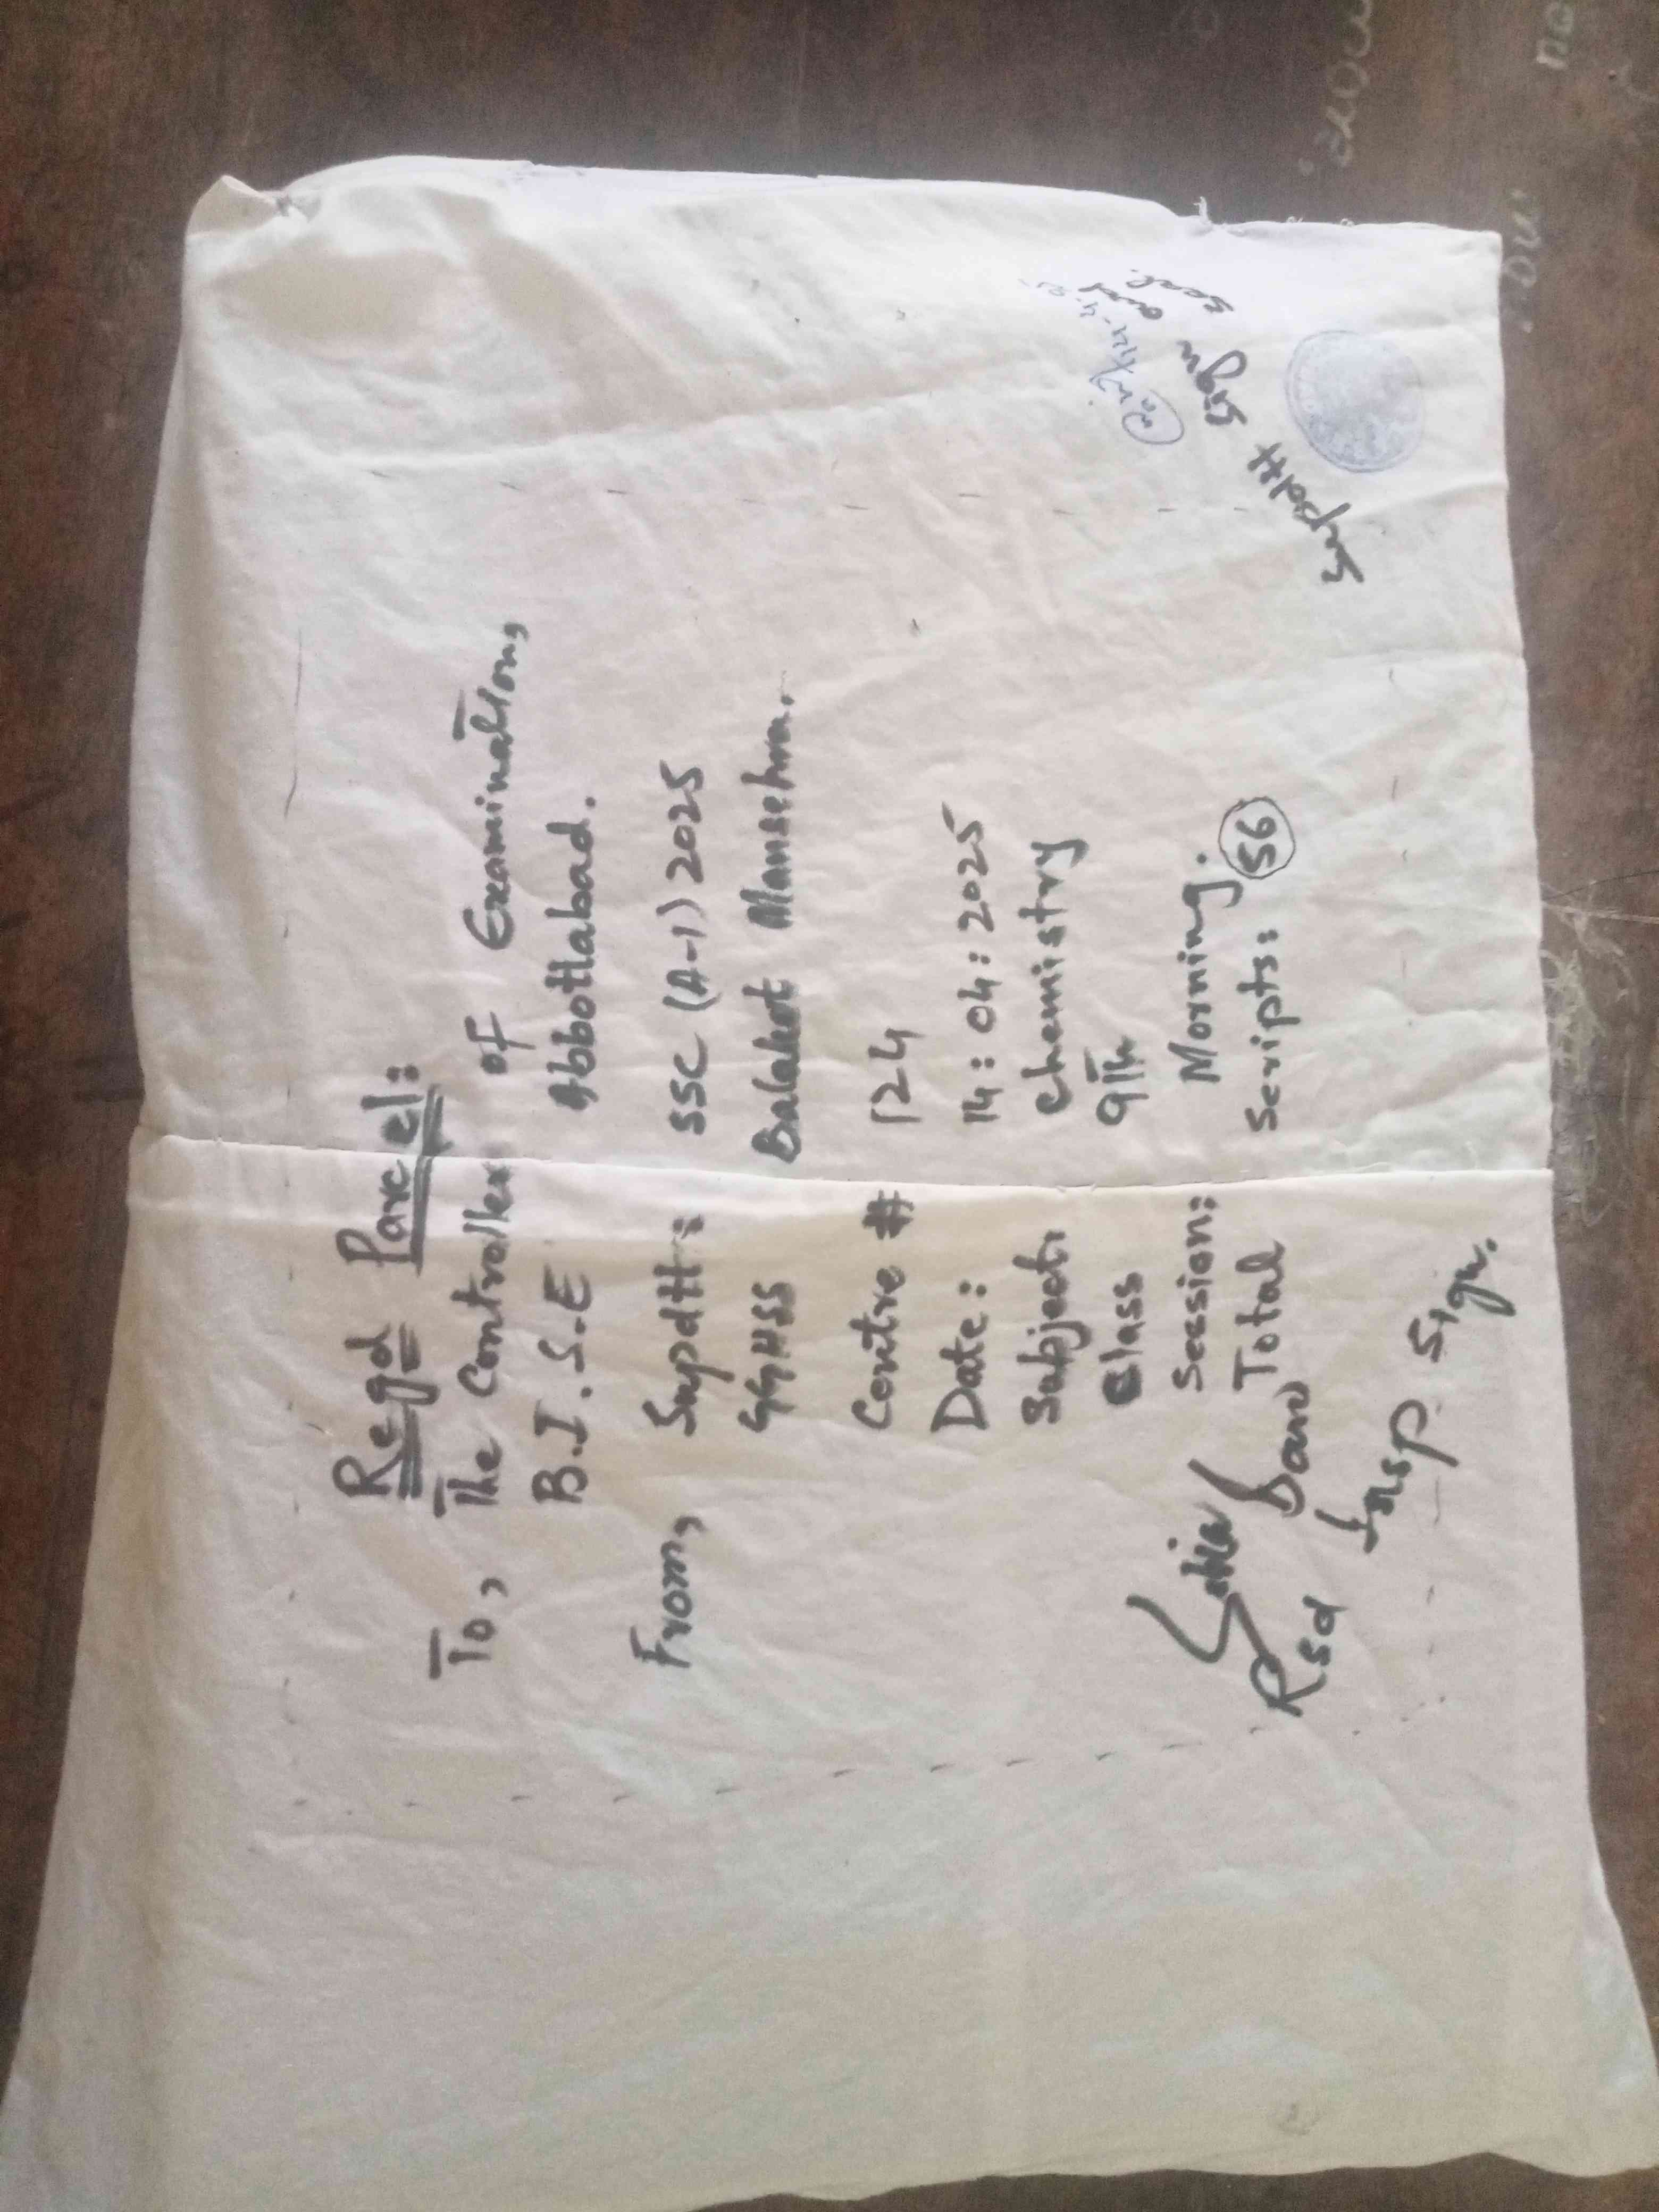 Regd Parcel:
To, The Controller of Examination,
B.I.S.E Abbottabad.
From, Supdtt: SSC (A-1) 2025
GGHSS Balakot Mansehra.
Centre # 124
Date: 14:04:2025
Subject: Chemistry
Class 9th
Session: Morning.
Total Scripts: 56
Insp Sign.
Supdtt Sign and seal.